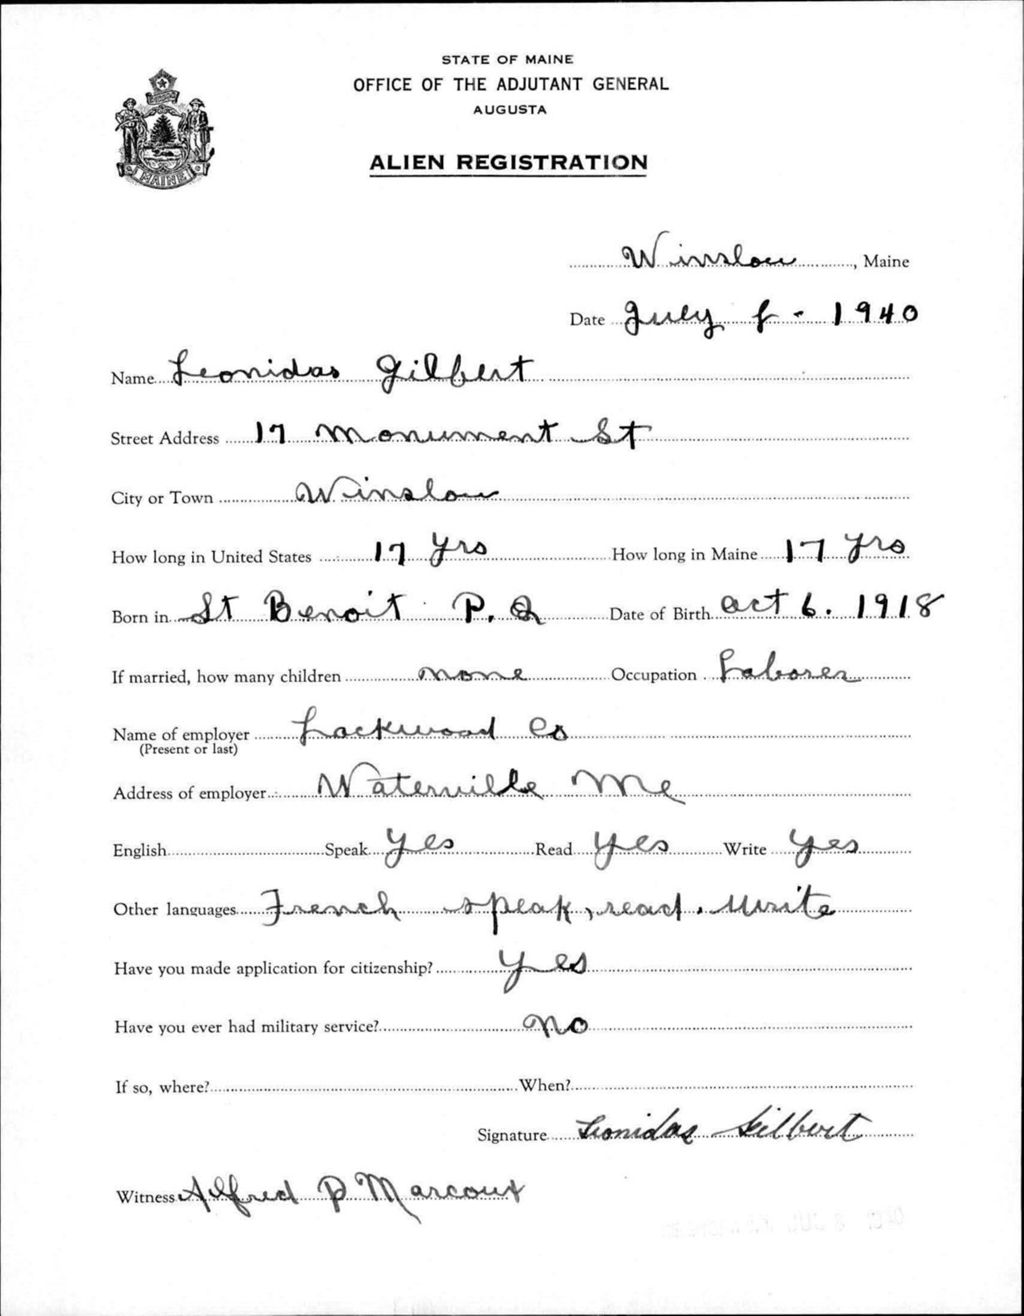 STATE OF MAINE
OFFICE OF THE ADJUTANT GENERAL
AUGUSTA
ALIEN REGISTRATION
MAINE
Winslow, Maine
Date July - 1940
Name Leonidas Gilbert
Street Address 17 Monument St
City or Town Winslow
How long in United States 17 yrs How long in Maine 17 yrs
Born in St Benoit P. Q Date of Birth Oct 6. 1918
If married, how many children none Occupation Laborer
Name of employer Lockwood Co
(Present or last)
Address of employer Waterville Me
English Speak Yes Read Yes Write Yes
Other languages French speak, read, write
Have you made application for citizenship? Yes
Have you ever had military service? No
If so, where? When?
Signature Leonidas Gilbert
Witness Alfred P Marcoux